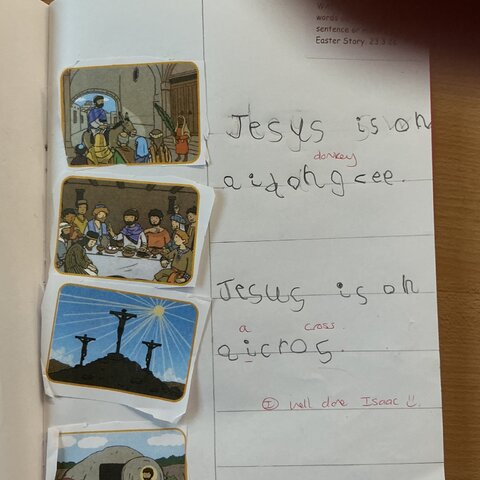 words
sentence
Easter Story. 23.3.2
Jesys is on
donkey
a i dong cee.
Jesus is on
a cross.
a i cros.
I well done Isaac